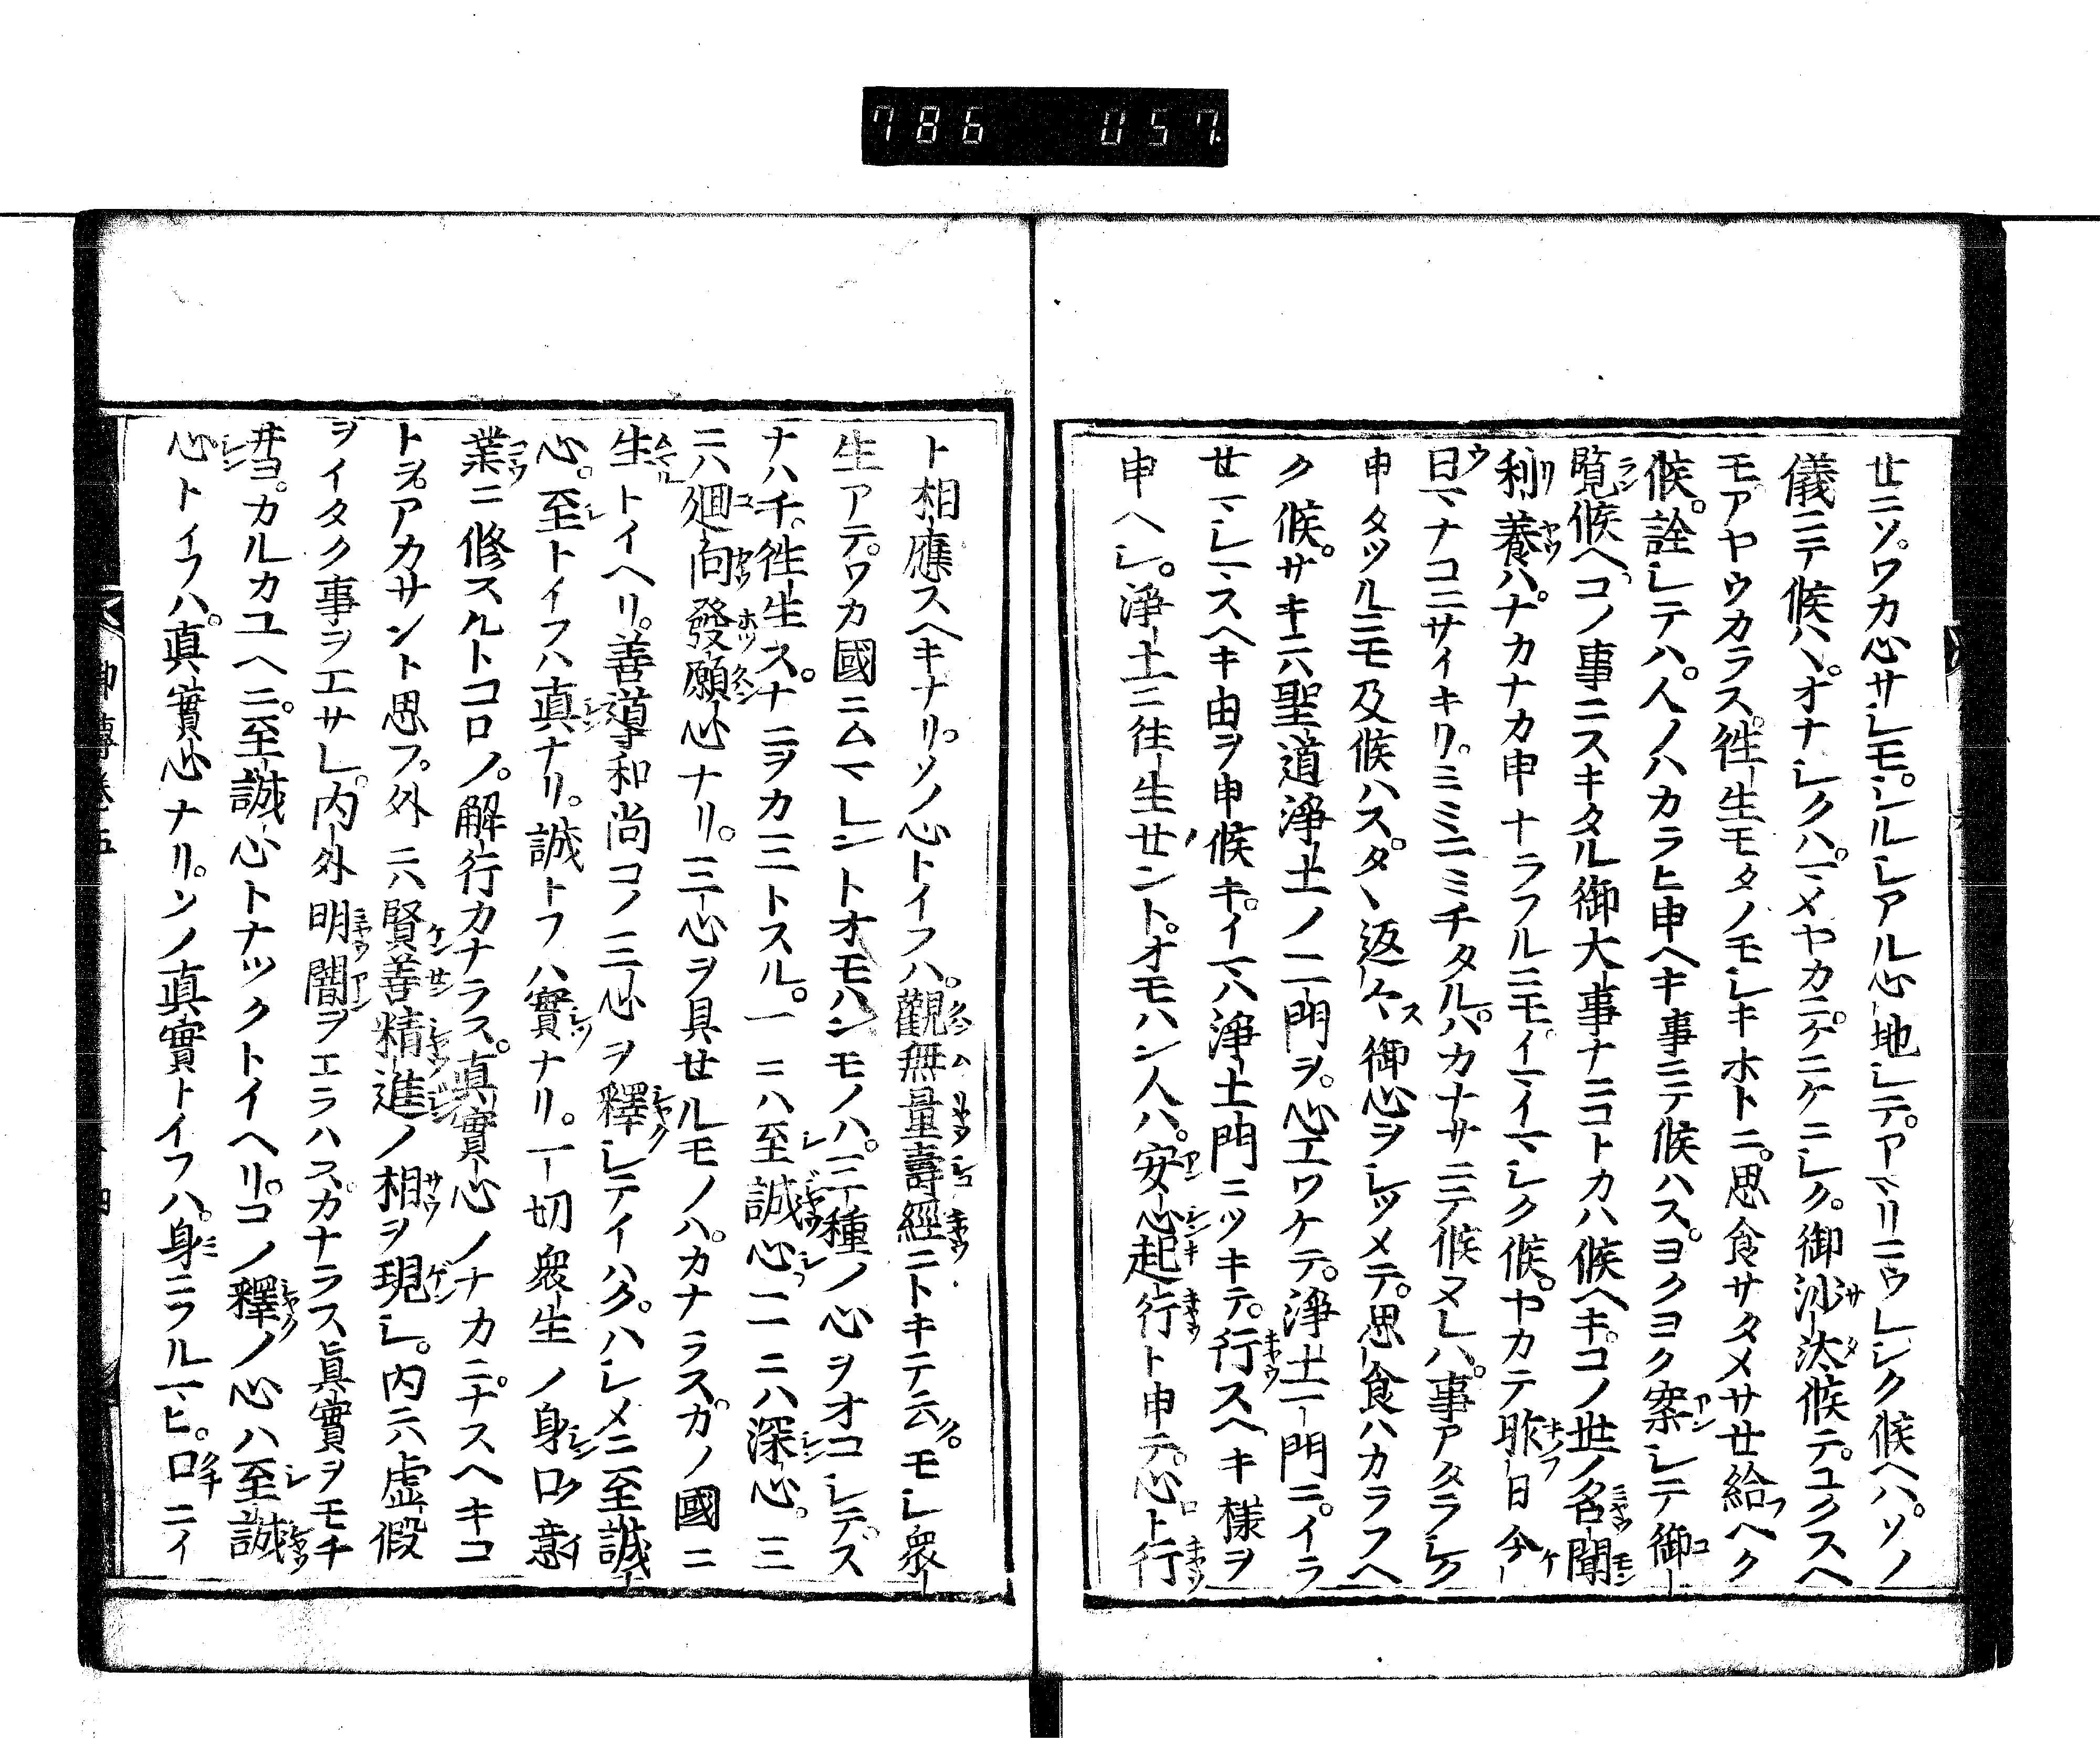 786 057
サニソ。ワカ心サレモ。シルレアル心地レテ。アマリニウレシク候ヘハ。ソノ
儀ニテ候ハヽ。オナレクハ。マメヤカニ。ケニケニレク。御沙汰候テ。ユクスヘ
モアヤウカラス。往生モタノモレキホトニ。思食サタメサセ給ヘク
候。詮レテハ。人ノハカラヒ申ヘキ事ニテ候ハス。ヨクヨク案レテ御
覧候ヘ。コノ事ニスキタル御大事ナニコトカハ候ヘキ。コノ世ノ名聞
利養ハ。ナカナカ申ナラフルニモ。イマイマシク候。ヤカテ昨日今
日マナコニサイキリ。ミミニミチタル。ハカナサニテ候ヌレハ。事アタラレク
申タツルニモ及候ハス。タヽ返々。御心ヲレツメテ。思食ハカラフヘ
ク候。サキニハ聖道淨土ノ二門ヲ。心エワケテ。淨土一門ニ。イラ
セマレマスヘキ由ヲ申候キ。イマハ淨土門ニツキテ。行スヘキ様ヲ
申ヘレ。淨土ニ往生セント。オモハン人ハ。安心起行ト申テ。心ト行
ト相應スヘキナリ。ソノ心トイフハ。觀無量壽經ニトキテ云。モレ衆
生アテ。ワカ國ニムマレントオモハンモノハ。三種ノ心ヲオコレテ。ス
ナハチ。往生ス。ナニヲカ三トスル。一ニハ至誠心。二ニハ深心。三
ニハ廻向發願心ナリ。三心ヲ具セルモノハ。カナラス。カノ國ニ
生トイヘリ。善導和尚コノ三心ヲ釋レテイハク。ハレメニ至誠
心。至トイフハ真ナリ。誠トフハ實ナリ。一切衆生ノ身口意
業ニ修スルトコロノ。解行カナラス。真實心ノナカニ。ナスヘキコ
トヲ。アカサント思フ。外ニハ賢善精進ノ相ヲ現レ。内ニハ虚假
ヲイタク事ヲエサレ。内外明闇ヲエラハス。カナラス真實ヲモチ
ヰヨ。カルカユヘニ。至誠心トナツクトイヘリ。コノ釋ノ心ハ至誠
心トイフハ。真實心ナリ。ソノ真實トイフハ。身ニフルマヒ。口ニイ